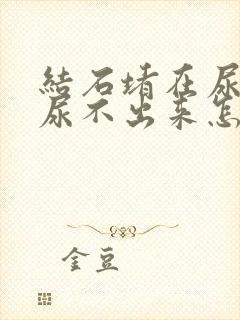 結石堵在尿
尿不出来怎
金豆